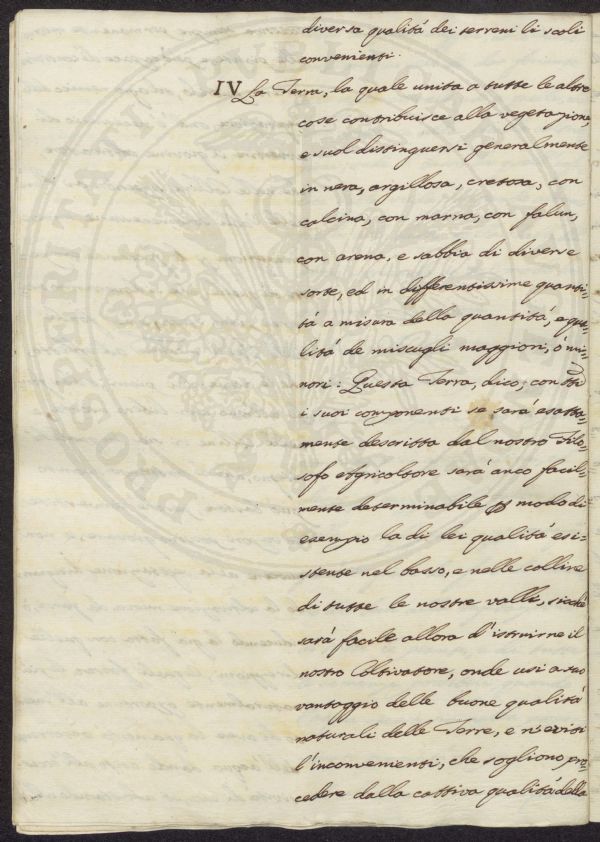 diversa qualitá dei terreni li scoli
convenienti.
IV La Terra, la quale unita a tutte le altre
cose contribuisce alla vegetazione,
e suol distinguersi generalmente
in nera, argillosa, cretosa, con
calcina, con marna, con falun,
con arena, e sabbia di diverse
sorte, ed in differentissime quanti=
tá a misura della quantitá, e qua=
litá de miscugli maggiori, ó mi=
nori: Questa Terra, dico, con tti
i suoi componenti se sará esatta=
mente descritta dal nostro Filo=
sofo Agricoltore sará anco facil=
mente determinabile p modo di
esempio la di lei qualitá esi=
stente nel basso, e nelle colline
di tutte le nostre valli, sicché
sará facile allora d'istruirne il
nostro Coltivatore, onde usi a suo
vantaggio delle buone qualitá
naturali delle Terre, e n'eviti
l'inconvenienti, che sogliono pro=
cedere dalla cattiva qualitá della
PRO UTILITATI PUBLICAE